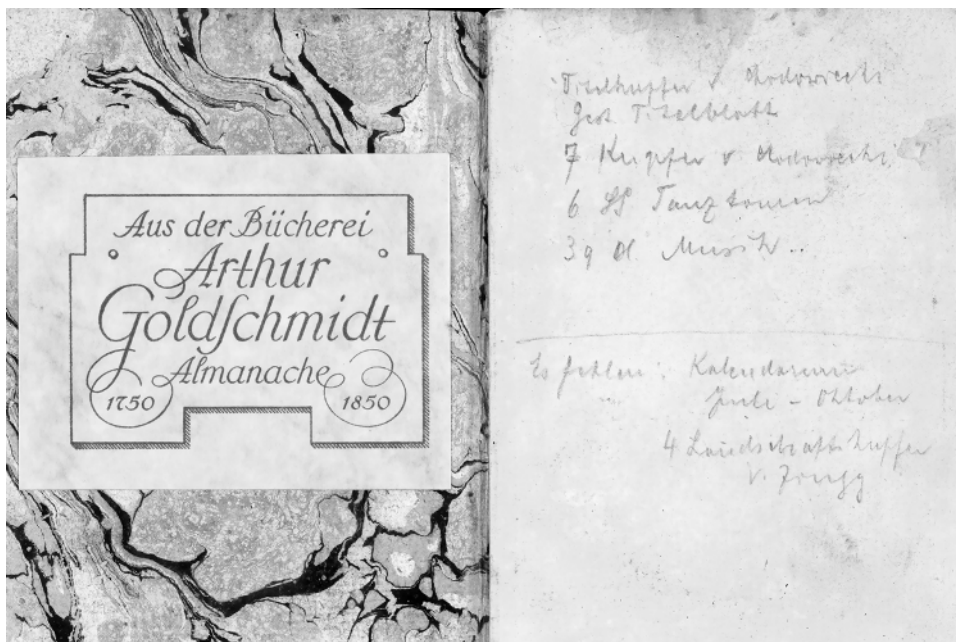 Aus der Bücherei
Arthur
Goldschmidt
Almanache
1750 1850
Titelkupfer v. Chodowiecki
Gest. Titelblatt
7 Kupfer v. Chodowiecki
6 Tanztouren
3 Musik
Es fehlen: Kalendarium
Juli - Oktober
4 Landschaftskupfer
v.